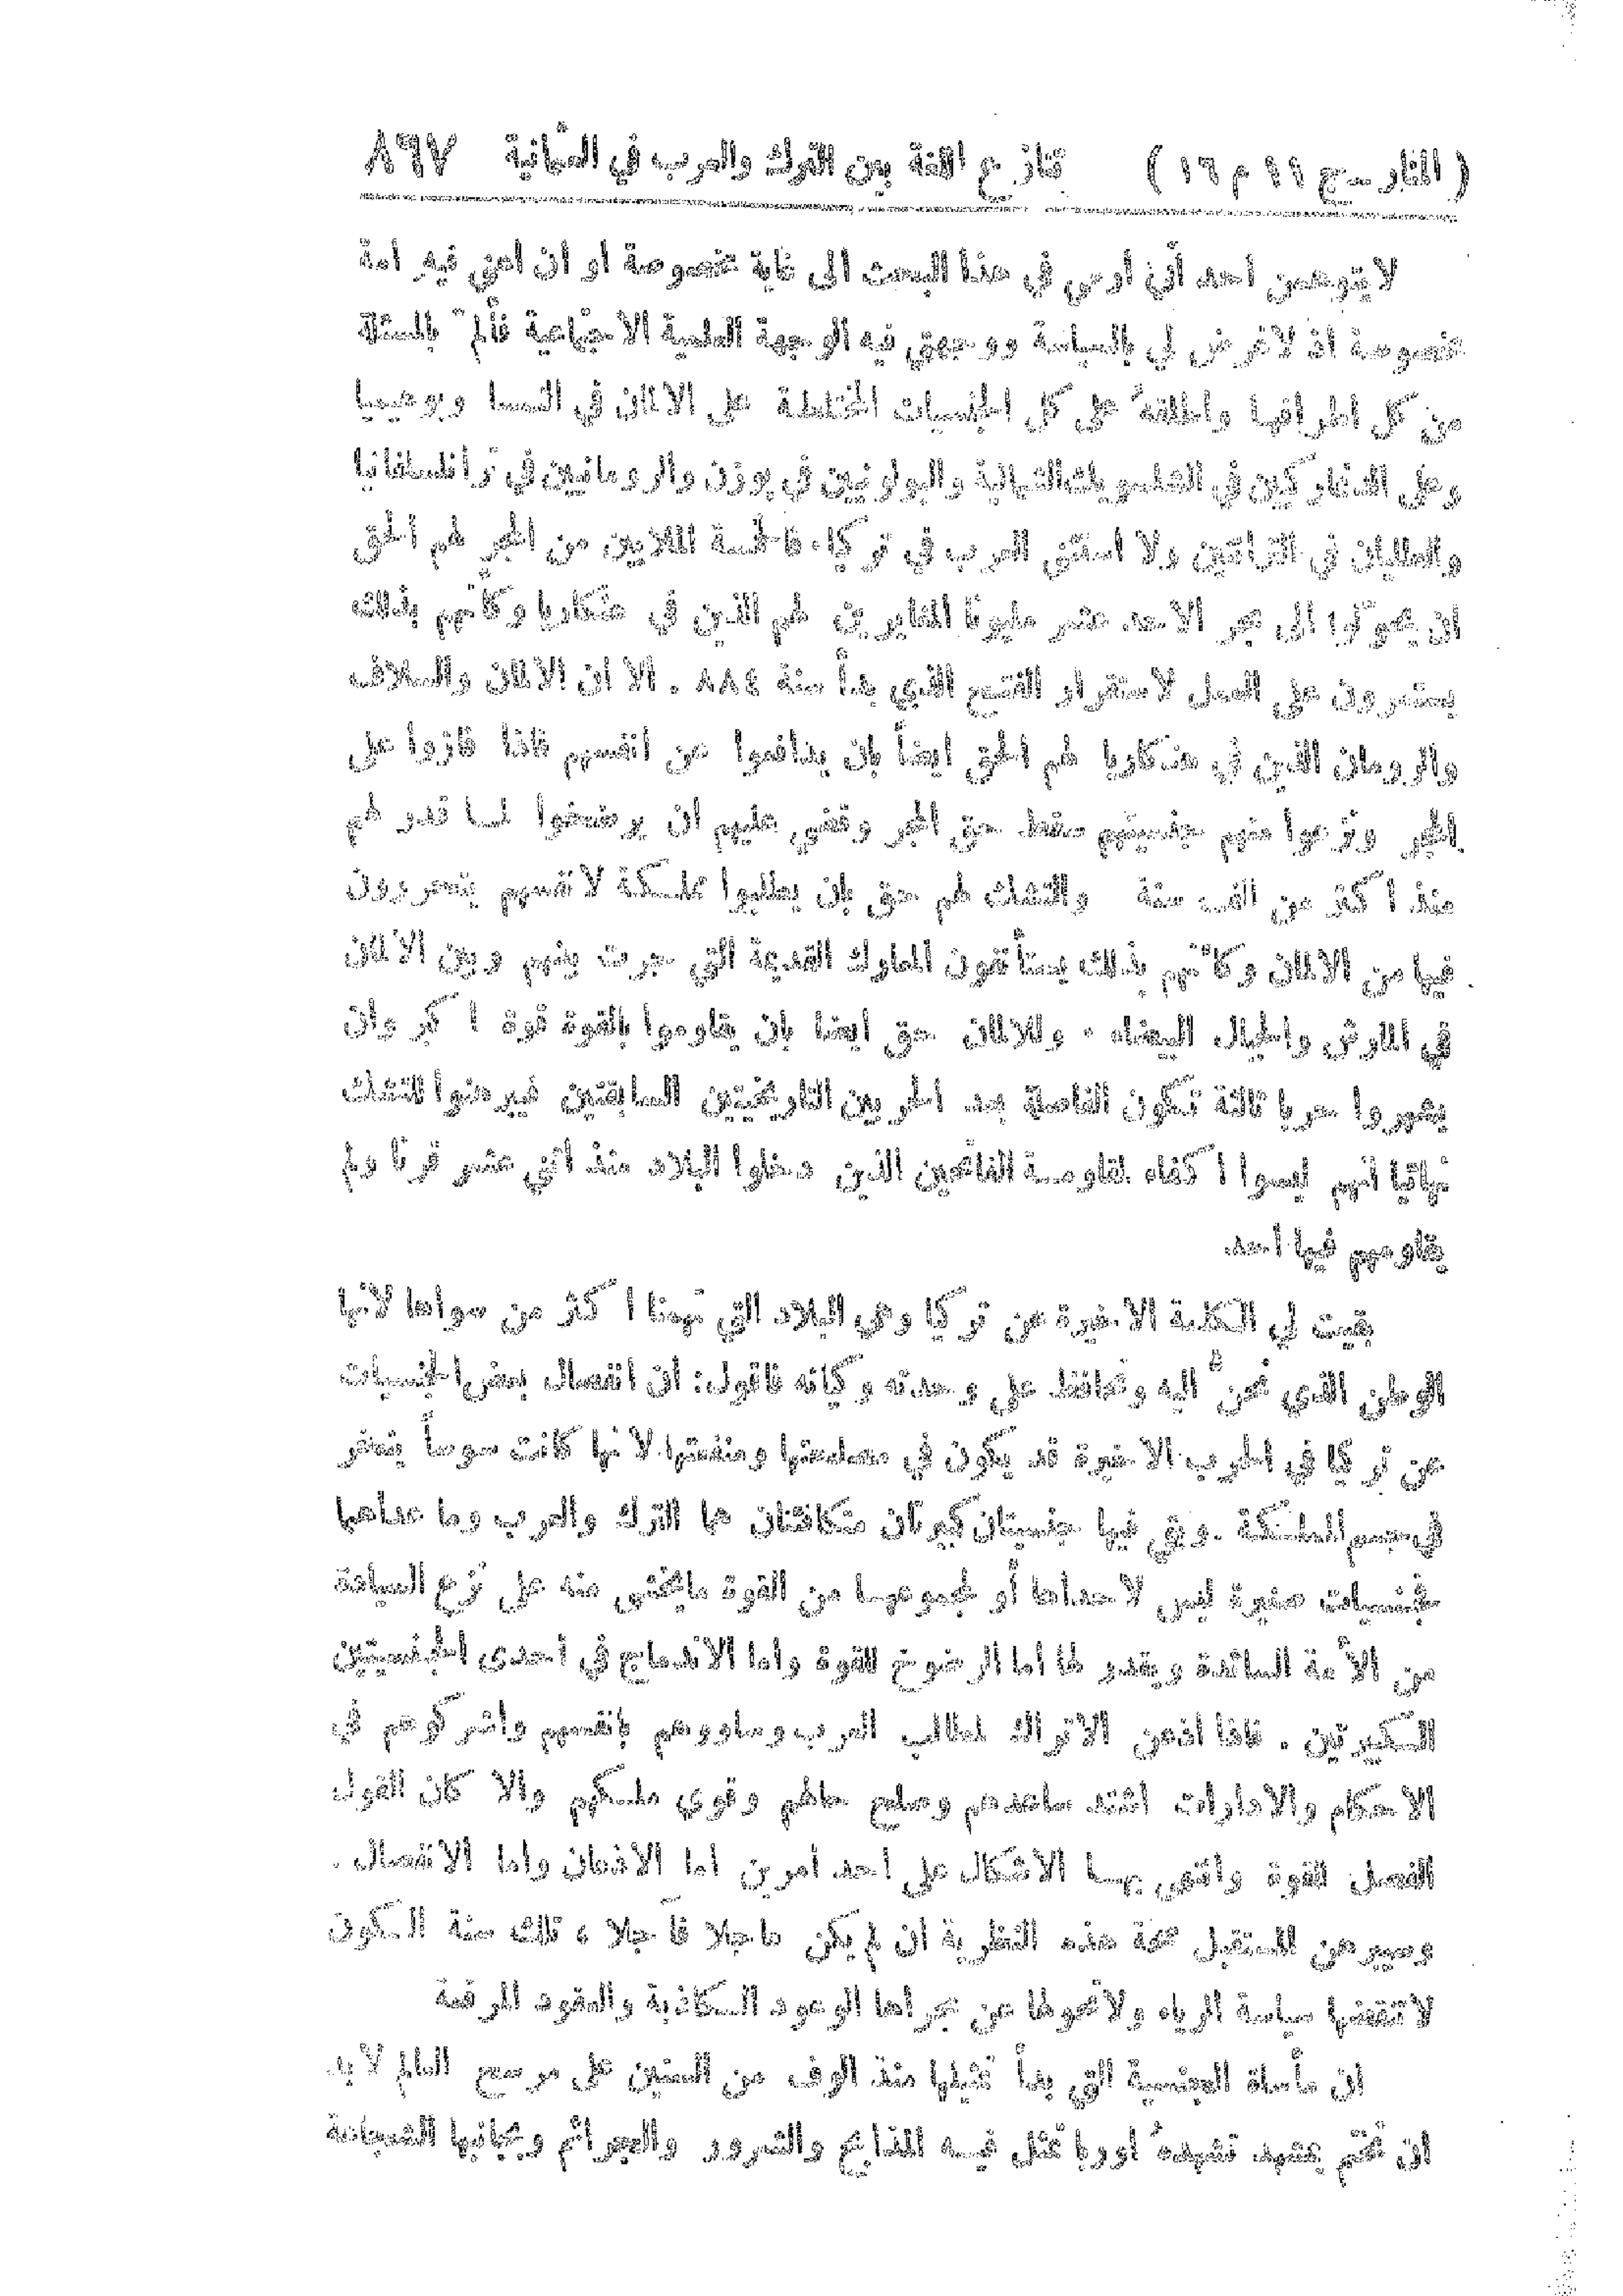 ( المنار ــ ج ١١ م ١٦ ) تنازع اللغة بين الترك والعرب في العثمانية ٨٦٧
لا يتوهمن احد أني أرمي في هذا البحث الى غاية مخصوصة او ان اعني فيه امة
مخصوصة اذ لا غرض لي بالسياسة ووجهتي فيه الوجهة العلمية الاجتماعية فألمّ بالمسئلة
من كل اطرافها واطلقهُ على كل الجنسيات المختلطة على الالمان في النمسا وبوهيميا
وعلى الدنماركيين في الشلسويك الشمالية والبولونيين في بوزن والرومانيين في ترانسلفانيا
والطليان في الترانتين ولا استثني العرب في تركيا. فالخمسة الملايين من المجر لهم الحق
ان يحوّلوا الى مجر الاحد عشر مليونًا المغايرين لهم الذين في هنكاريا وكأنهم بذلك
يستمرون على العمل لاستقرار الفتح الذي بدأ سنة ٨٨٤ . الا ان الالمان والسلاف
والرومان الذين في هنكاريا لهم الحق ايضاً بان يدافعوا عن انفسهم فاذا فازوا على
المجر ونزعوا منهم جنسيتهم سقط حق المجر وقضي عليهم ان يرضخوا لما قدر لهم
منذ اكثر من الف سنة والتشك لهم حق بان يطلبوا مملكة لانفسهم يتحررون
فيها من الالمان وكأنهم بذلك يستأنفون المعارك القديمة التي جرت بينهم وبين الالمان
في المارش والجبال البيضاء . وللالمان حق ايضا بان يقاوموا بالقوة قوة اكبر وان
يشهروا حربا ثالثة تكون الفاصلة بعد الحربين التاريخيتين السابقتين فيبرهنوا للتشك
نهائيا انهم ليسوا اكفاء لمقاومة الفاتحين الذين دخلوا البلاد منذ اثني عشر قرنا ولم
يقاومهم فيها احد
بقيت لي الكلمة الاخيرة عن تركيا وهي البلاد التي تهمنا اكثر من سواها لانها
الوطن الذي نحنّ اليه ونحافظ على وحدته وكيانه فاقول: ان انفصال بعض الجنسيات
عن تركيا في الحرب الاخيرة قد يكون في مصلحتها ومنفعتها لانها كانت سوساً ينخر
في جسم المملكة . وبقي فيها جنسيتان كبيرتان متكافئتان هما الترك والعرب وما عداهما
فجنسيات صغيرة ليس لاحداها أو لمجموعهما من القوة ما يخشى منه على نزع السيادة
من الأمة السائدة ويقدر لها اما الرضوخ للقوة واما الاندماج في احدى الجنسيتين
الكبيرتين . فاذا اذعن الاتراك لمطالب العرب وساووهم بانفسهم واشركوهم في
الاحكام والادارات اشتد ساعدهم وصلح حالهم وقوي ملكهم والا كان القول
الفصل للقوة وانتهى بهما الاشكال على احد أمرين اما الاذعان واما الانفصال .
وسيبرهن المستقبل صحة هذه النظرية ان لم يكن عاجلا فآجلا ، تلك سنة الكون
لا تنقضها سياسة الرياء ولا تحولها عن مجراها الوعود الكاذبة والعقود المرقعة
ان مأساة الجنسية التي بدأ تمثيلها منذ الوف من السنين على مرسح العالم لا بد
ان تختم بمشهد تشهدهُ اوربا تمثل فيه المذابح والشرور والجرائم وبجانبها الشجاعة